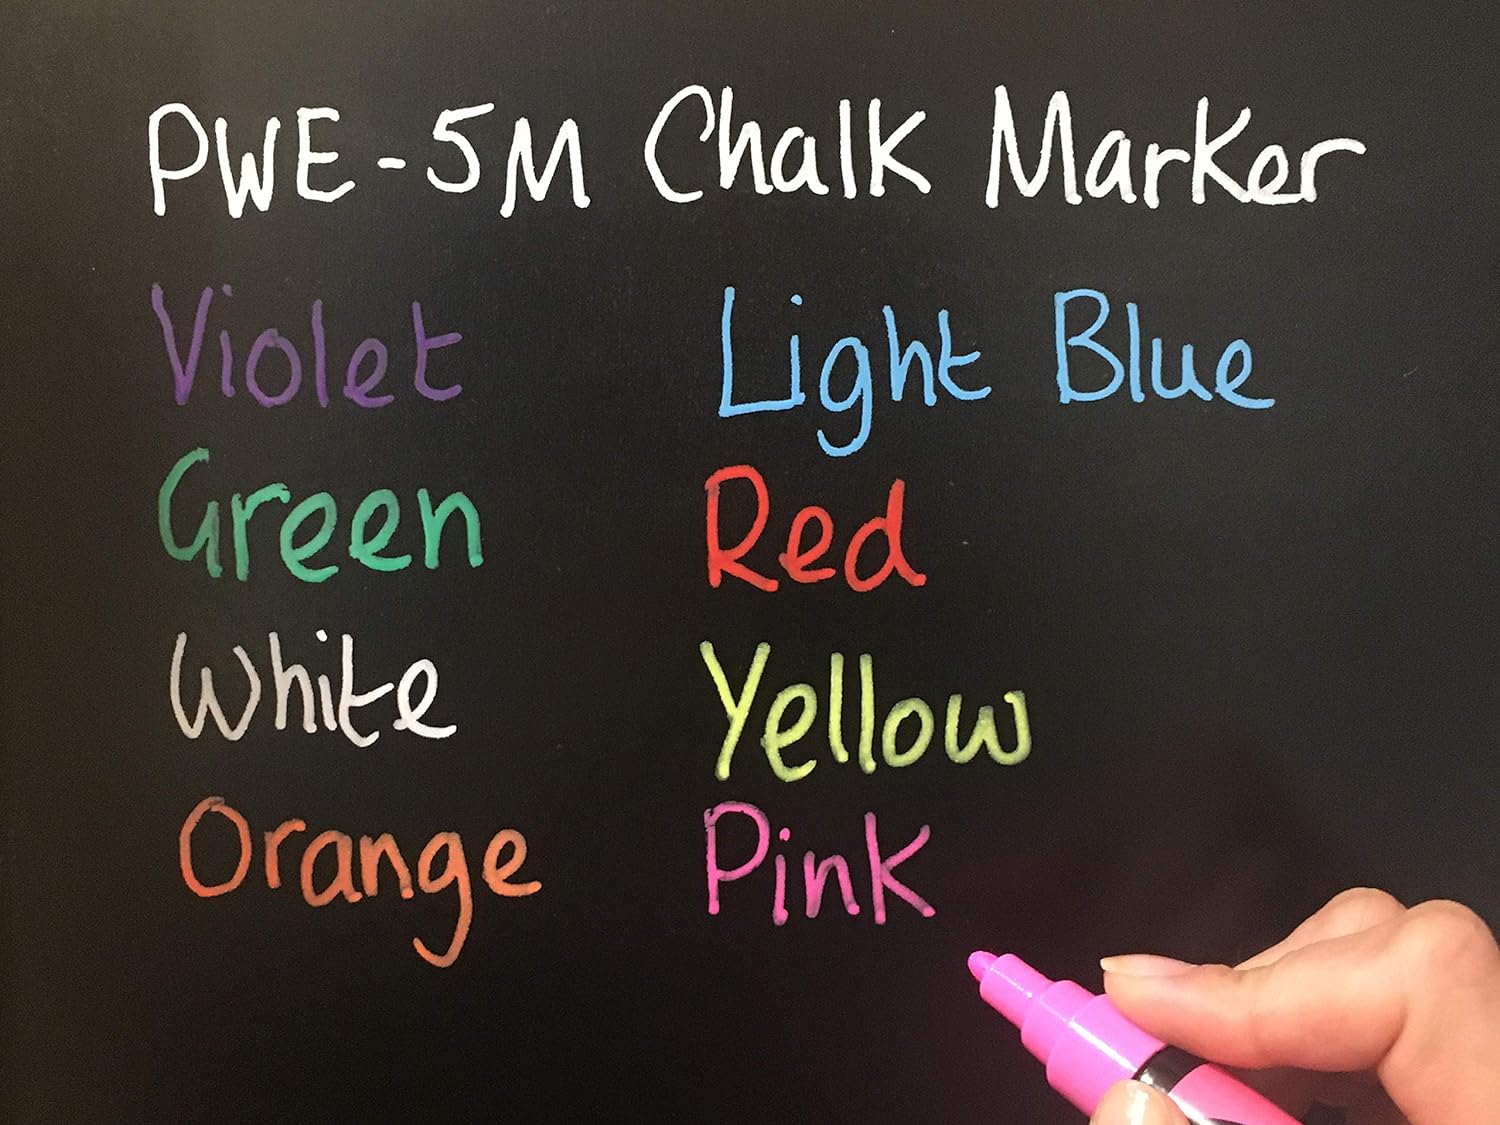 PWE-5M Chalk Marker
Violet Light Blue
Green Red
White Yellow
Orange Pink